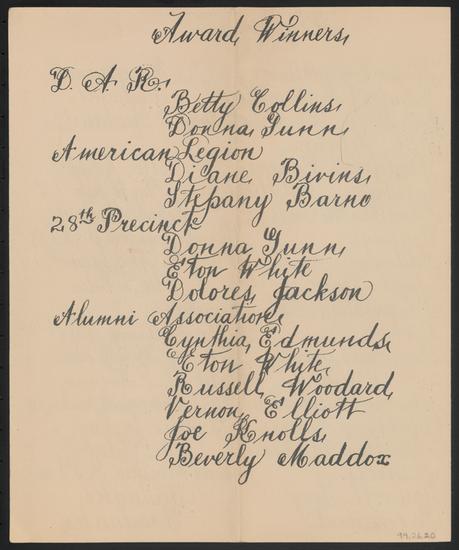 Award Winners
D. A. R.
Betty Collins
Donna Gunn
American Legion
Diane Bivins
Stepany Barno
28th Precinct
Donna Gunn
Eton White
Dolores Jackson
Alumni Association
Cynthia Edmunds
Eton White
Russell Woodard
Vernon Elliott
Joe Knolls
Beverly Maddox
99.26.20